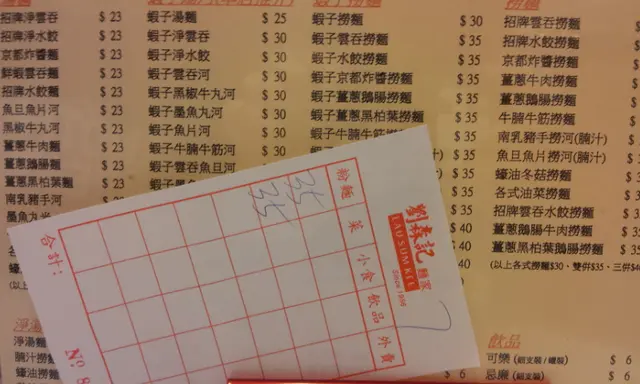 招牌淨雲吞 $ 23
招牌淨水餃 $ 23
京都炸醬麵 $ 23
鮮蝦雲吞麵 $ 23
招牌水餃麵 $ 23
魚旦魚片河 $ 23
黑椒牛丸河 $ 23
薑蔥牛肉麵 $ 23
薑蔥鵝腸麵 $ 23
薑蔥黑柏葉麵 $ 23
南乳豬手麵 $ 23
墨魚丸
(以上
蝦子湯麵 $ 25
蝦子淨雲吞 $ 30
蝦子淨水餃 $ 30
蝦子雲吞河 $ 30
蝦子黑椒牛丸河 $ 30
蝦子墨魚丸河 $ 30
蝦子魚片河 $ 30
蝦子牛腩牛筋河 $ 30
蝦子雲吞魚旦河
蝦子撈麵 $ 30
蝦子雲吞撈麵 $ 35
蝦子水餃撈麵 $ 35
蝦子京都炸醬撈麵 $ 35
蝦子薑蔥鵝腸撈麵 $ 35
蝦子薑蔥黑柏葉撈麵 $ 35
蝦子牛腩牛筋撈麵 $ 35
$ 35
$ 35
$ 35
$ 35
$ 40
$ 40
撈麵
招牌雲吞撈麵
招牌水餃撈麵
京都炸醬撈麵
薑蔥牛肉撈麵
薑蔥鵝腸撈麵
牛腩牛筋撈麵
南乳豬手撈河(腩汁)
魚旦魚片撈河(腩汁)
蠔油冬菇撈麵
各式油菜撈麵
招牌雲吞水餃撈麵
薑蔥鵝腸牛肉撈麵
薑蔥黑柏葉鵝腸撈麵
(以上各式撈麵$30、雙併$35、三併$4
劉森記麵家
LAU SUM KEE
SINCE 1956
粉麵 菜 小食 飲品 外賣
35
35
7
合計:
Nº 8
淨湯
腩汁撈
蠔油撈
飲品
可樂 (細支裝 / 罐裝) $ 6
忌廉 (細支裝) $ 6
$ 6